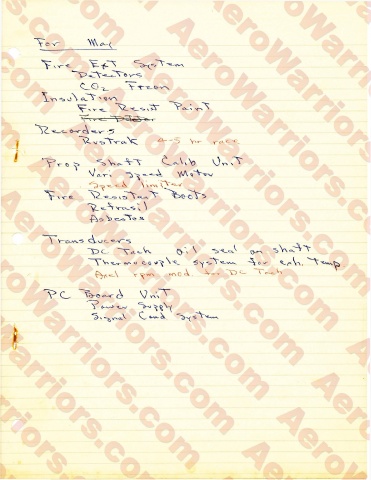 For May
Fire Ext System
Detectors
CO2 Freon
Insulation
Fire Resist Paint
Recorders
Rustrak 4-5 hr race
Prop Shaft Calib Unit
Vari Speed Motor
Speed limiter
Fire Resistant Boots
Refrasil
Asbestos
Transducers
DC Tach oil seal on shaft
Thermocouple system for exh. temp
Axel rpm mod to DC Tach
PC Board Unit
Power Supply
Signal Cond System
AeroWarriors.com